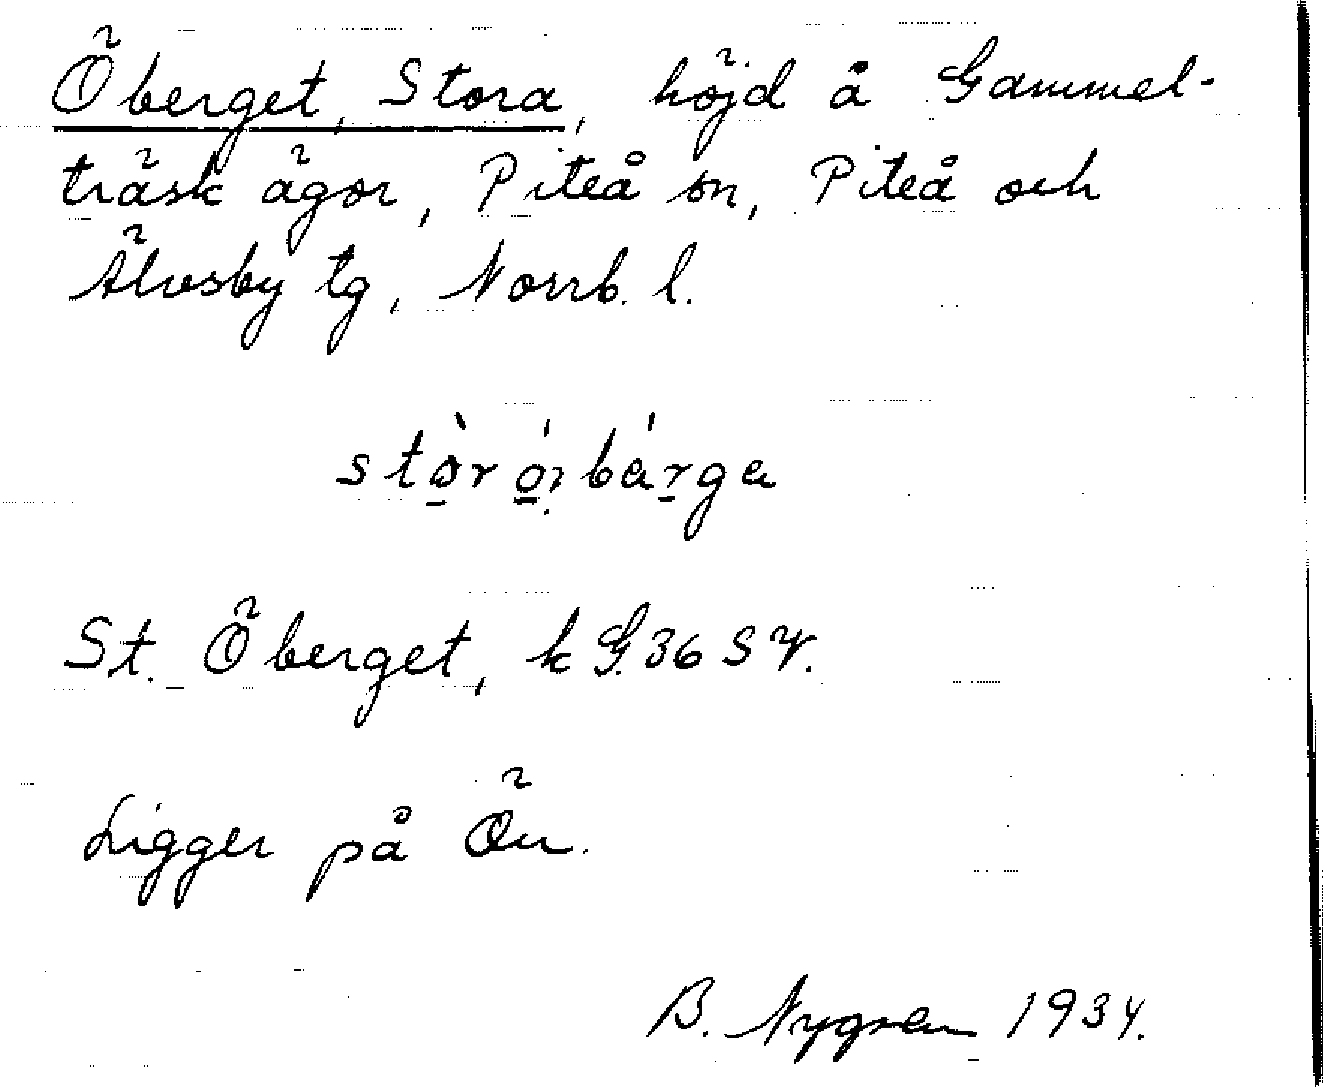 Öberget, Stora, höjd å Gammel-
träsk ägor, Piteå sn, Piteå och
Älvsby tg, Norrb. l.
St. Öberget, k G.36 SV.
Ligger på Ön.
B. Nygren 1934.